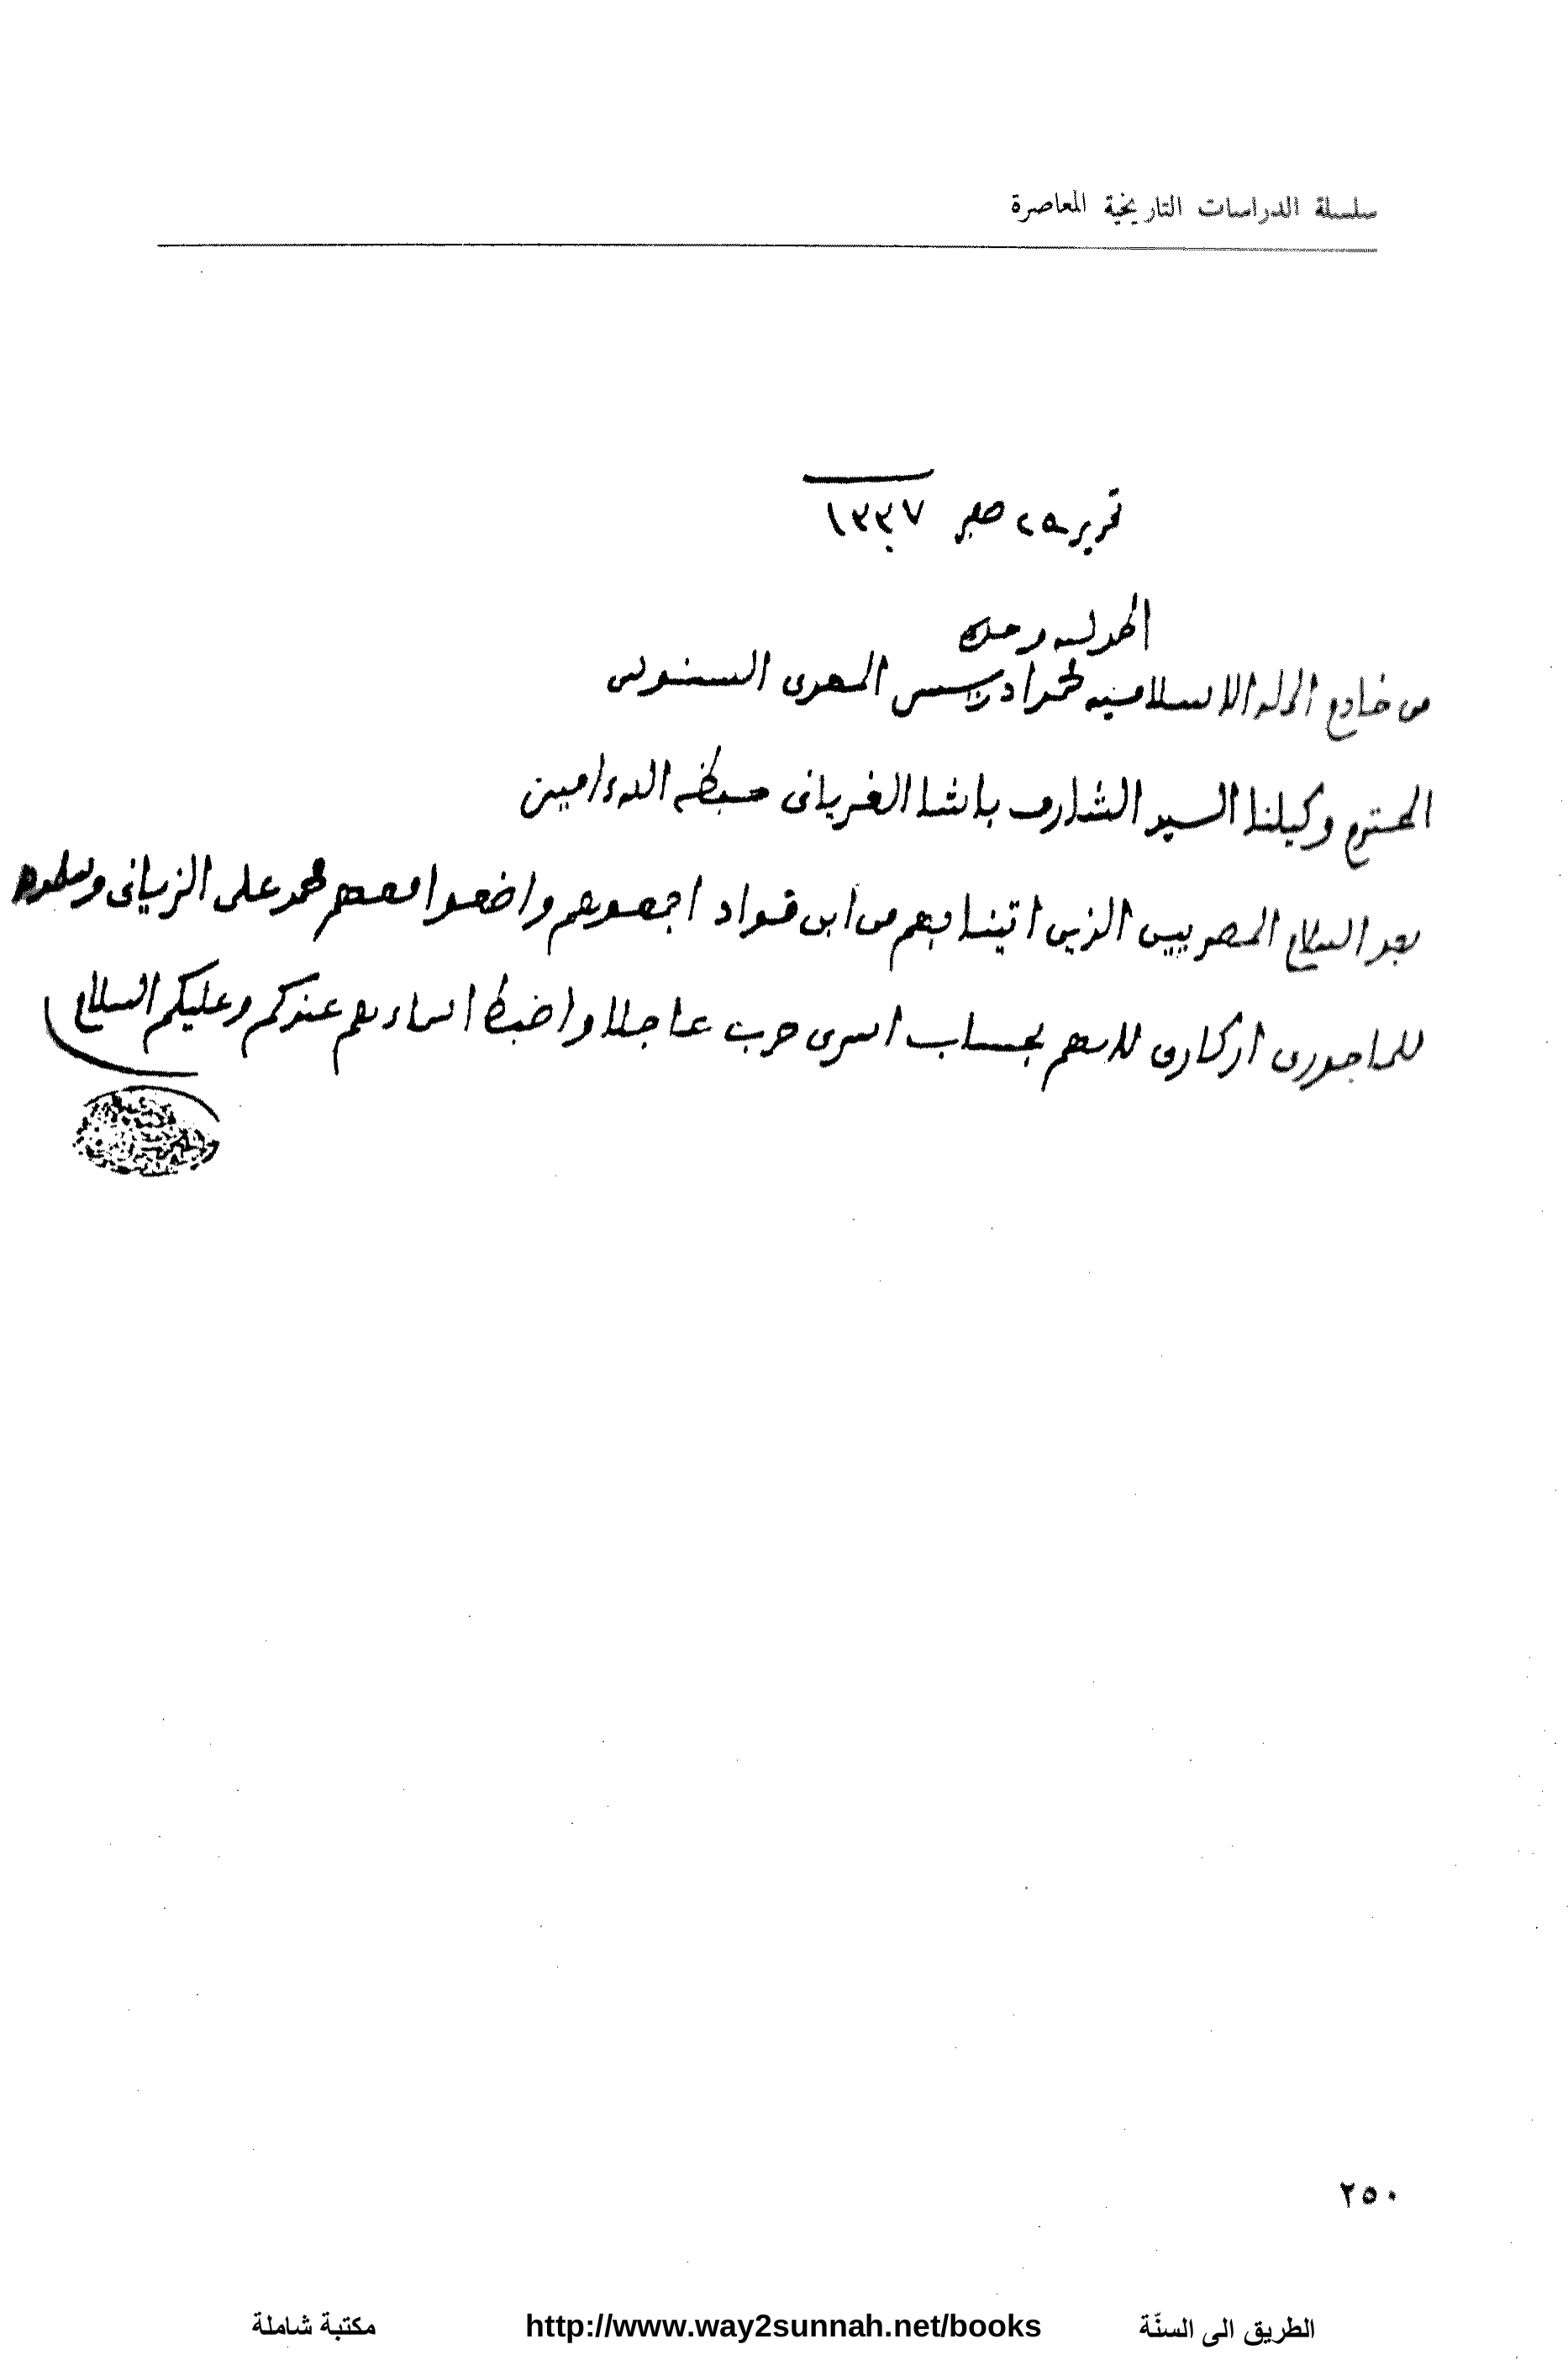 سلسلة الدراسات التاريخية المعاصرة
تحرير ٢٥ صفر ١٣٣٧
الحمد لله وحده
من خادم الملة الاسلامية محمد ادريس المهدى السنوسى
المحترم وكيلنا السيد الشارف باشا الغريانى حفظه الله ءامين
بعد السلام المصريين الذين اتينا بهم من ابن قواد اجمعوهم واضعوا معهم محمد على الزيانى
للماجورى اركارى للاسهم بحساب اسرى حرب عاجلا واضبط اسماءهم عندكم وعليكم السلام
٢٥٠
الطريق الى السنّة http://www.way2sunnah.net/books مكتبة شاملة